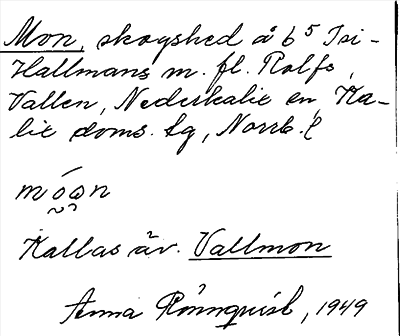 Mon, skogshed å b5 Isi-
Hallmans m. fl. Rolfs,
Vallen, Nederkalix sn, Ka-
lix doms. lg, Norrb. l
móωn
Kallas äv. Vallmon
Anna Rönnquist, 1949